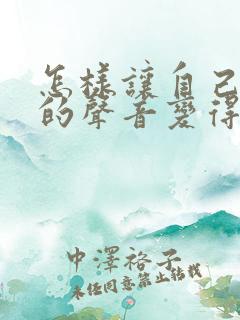 怎樣讓自己
的聲音變得
中澤裕子
未经同意禁止转载